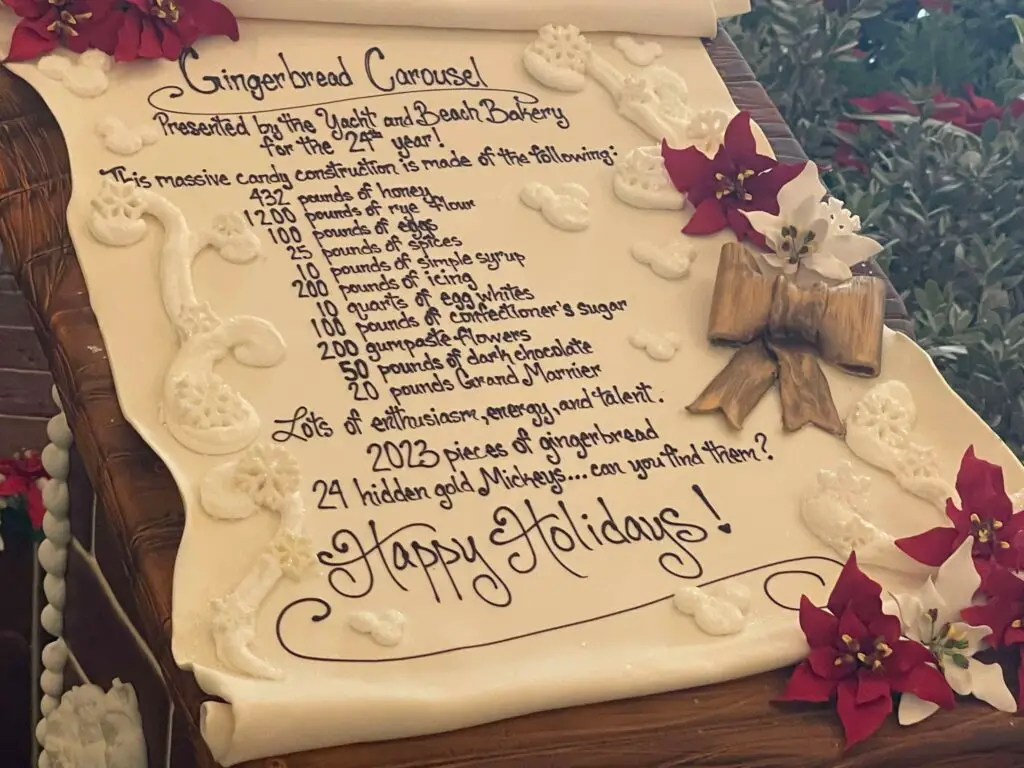 Gingerbread Carousel
Presented by the Yacht and Beach Bakery
for the 24th year!
This massive candy construction is made of the following:
432 pounds of honey
1200 pounds of rye flour
100 pounds of eggs
25 pounds of spices
10 pounds of simple syrup
200 pounds of icing
10 quarts of egg whites
100 pounds of confectioner's sugar
200 gumpaste flowers
50 pounds of dark chocolate
20 pounds Grand Marnier
Lots of enthusiasm, energy, and talent.
2023 pieces of gingerbread
24 hidden gold Mickeys... can you find them?
Happy Holidays!